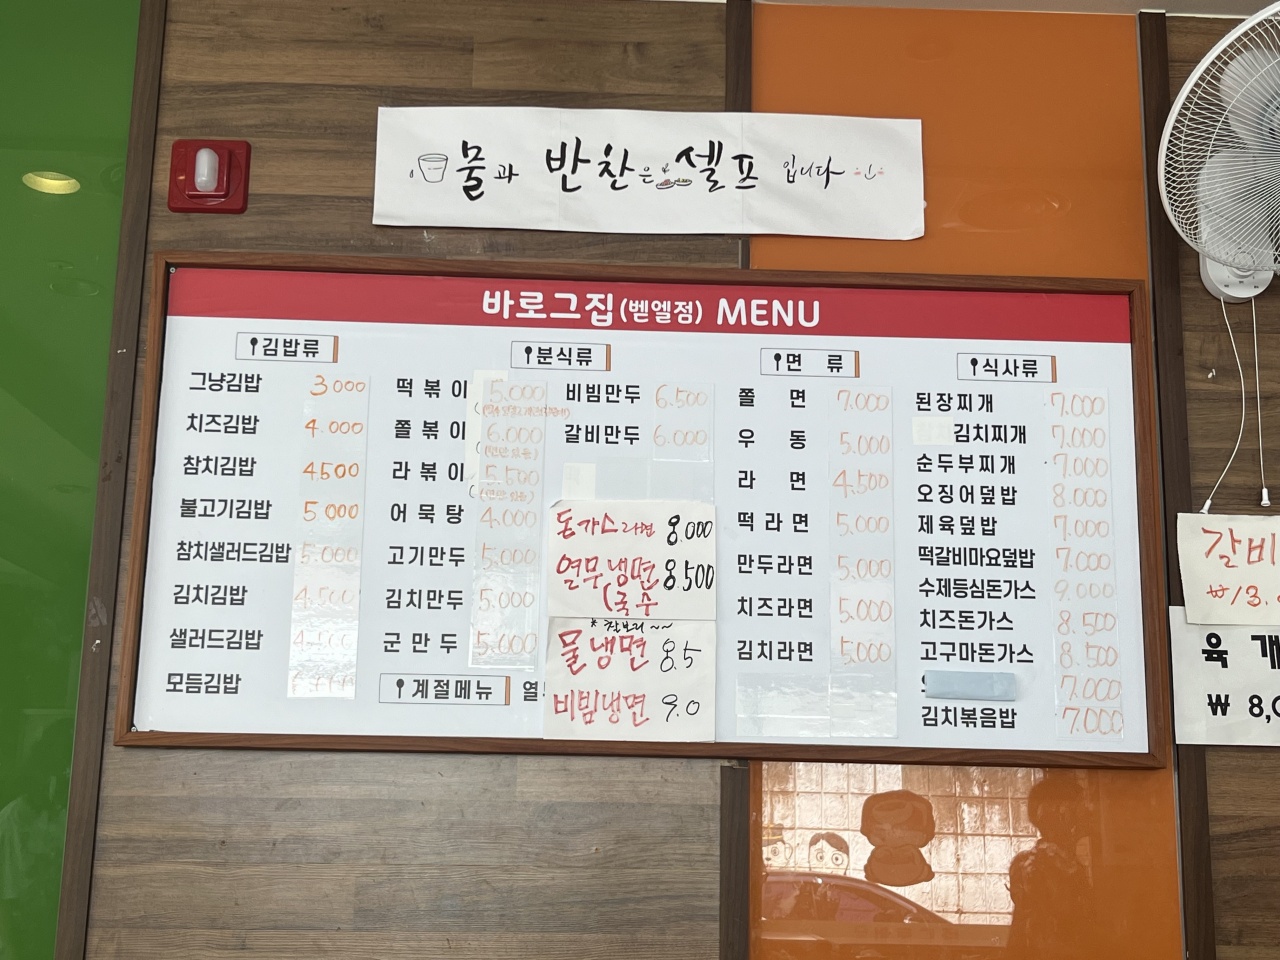 물과 반찬은 셀프 입니다
바로그집(벧엘점) MENU
김밥류
그냥김밥 3000
치즈김밥 4.000
참치김밥 4500
불고기김밥 5000
참치샐러드김밥 5.000
김치김밥 4.500
샐러드김밥
모듬김밥
분식류
떡볶이 5,000
쫄볶이 6.000
라볶이 5,500
어묵탕 4,000
고기만두 5,000
김치만두 5,000
군만두 5,000
계절메뉴 열
비빔만두 6.500
갈비만두 6.000
돈가스라면 8.000
열무냉면 8,500
(국수
* 찰보리~~
물냉면 8.5
비빔냉면 9.0
면 류
쫄면 7,000
우동 5.000
라면 4,500
떡라면 5,000
만두라면 5,000
치즈라면 5,000
김치라면 5,000
식사류
된장찌개 7,000
김치찌개 7,000
순두부찌개 7,000
오징어덮밥 8.000
제육덮밥 7,000
떡갈비마요덮밥 7,000
수제등심돈가스 9.000
치즈돈가스 8.500
고구마돈가스 8.500
7,000
김치볶음밥 7,000
갈비
₩13.
육개
₩ 8,0